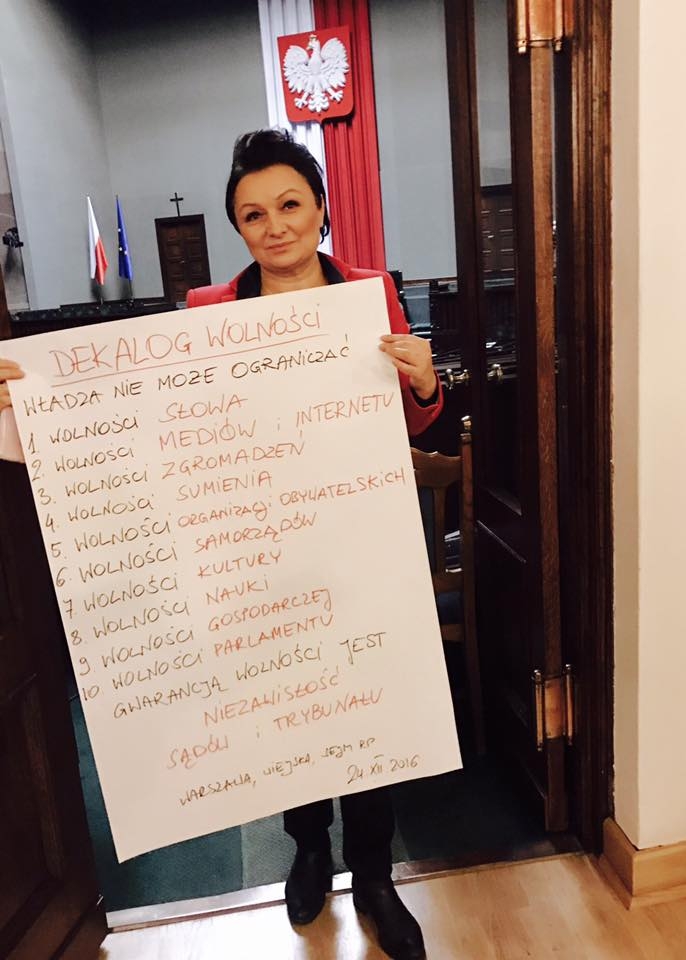 DEKALOG WOLNOŚCI
WŁADZA NIE MOŻE OGRANICZAĆ
1. WOLNOŚCI SŁOWA
2. WOLNOŚCI MEDIÓW i INTERNETU
3. WOLNOŚCI ZGROMADZEŃ
4. WOLNOŚCI SUMIENIA
5. WOLNOŚCI ORGANIZACJI OBYWATELSKICH
6. WOLNOŚCI SAMORZĄDÓW
7. WOLNOŚCI KULTURY
8. WOLNOŚCI NAUKI
9. WOLNOŚCI GOSPODARCZEJ
10. WOLNOŚCI PARLAMENTU
GWARANCJĄ WOLNOŚCI JEST
NIEZAWISŁOŚĆ
SĄDÓW i TRYBUNAŁU
WARSZAWA, WIEJSKA, SEJM RP
24.XII.2016